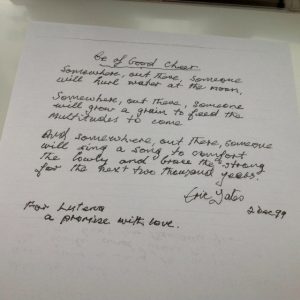 Be of Good Cheer
Somewhere, out there, someone
will hurl water at the moon,
Somewhere, out there, someone
will grow a grain to feed the
multitudes to come
And somewhere, out there, someone
will sing a song to comfort
the lowly and brave the strong
for the next two thousand years.
Eric Yates
2 Dec 99
For
a promise with love.